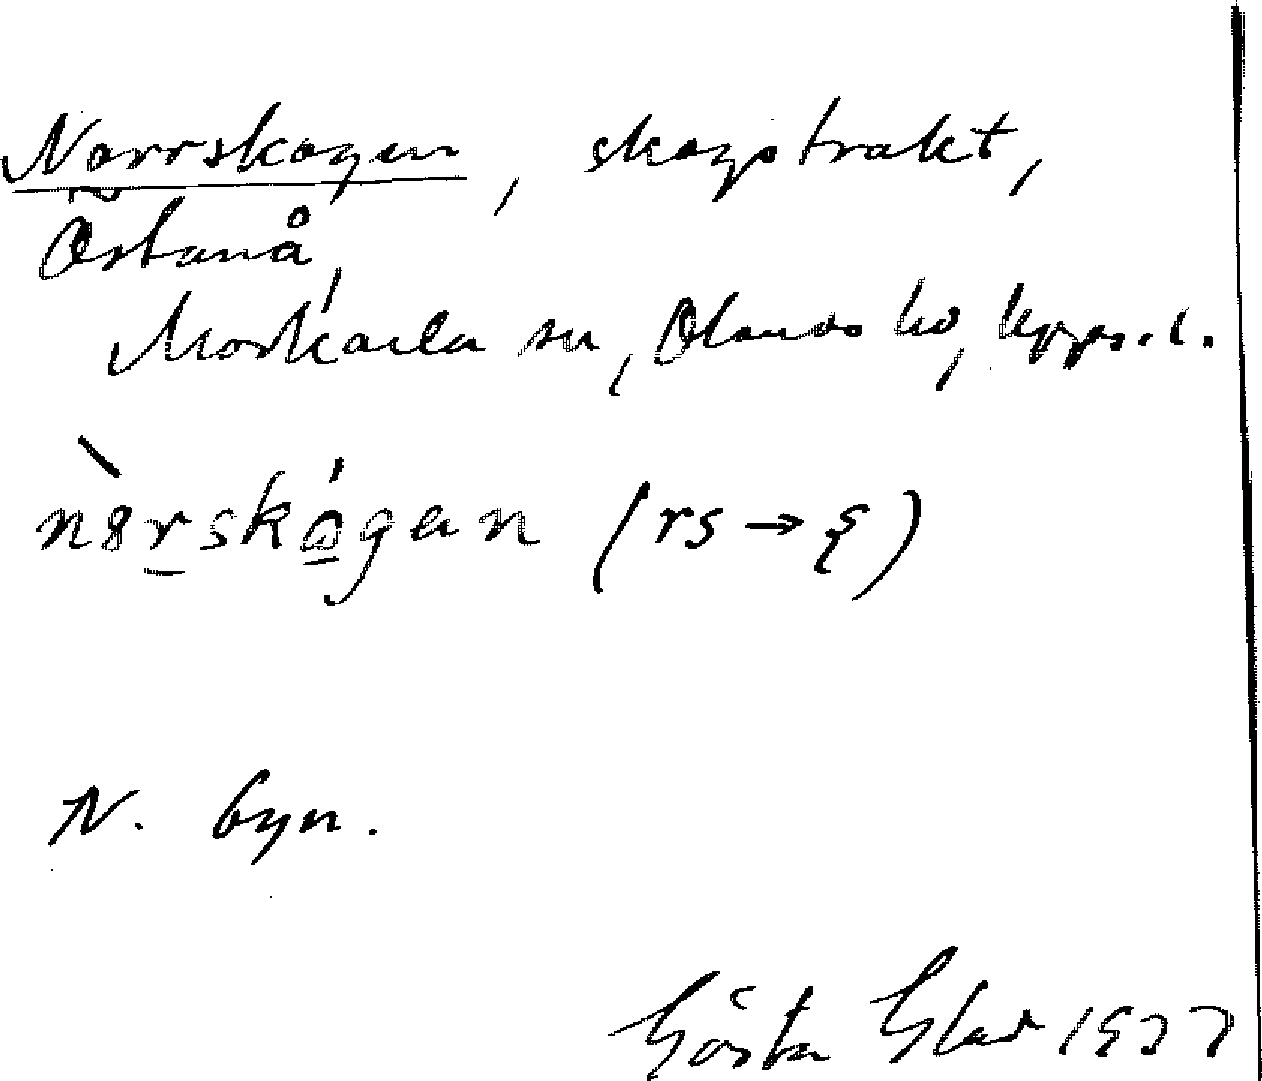 Norrskogen, skogstrakt,
Östanå,
Morkarla sn, Olands hd, Upps. l.
nɵ̀rskógan (rs → ʂ)
N. byn.
Gösta 1937